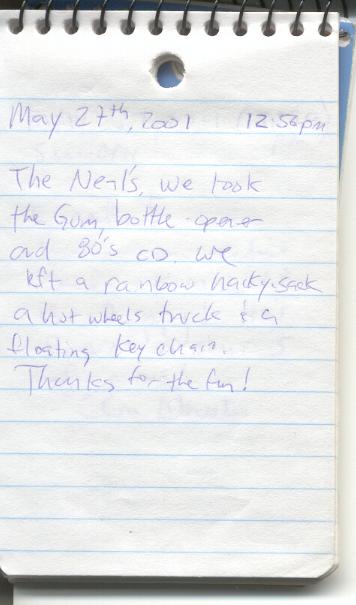 May 27th, 2001 12:56pm
The Neal's, we took
the Gum, bottle opener
and 80's CD. We
left a rainbow hacky-sack
a hot wheels truck & a
floating key chain.
Thanks for the fun!